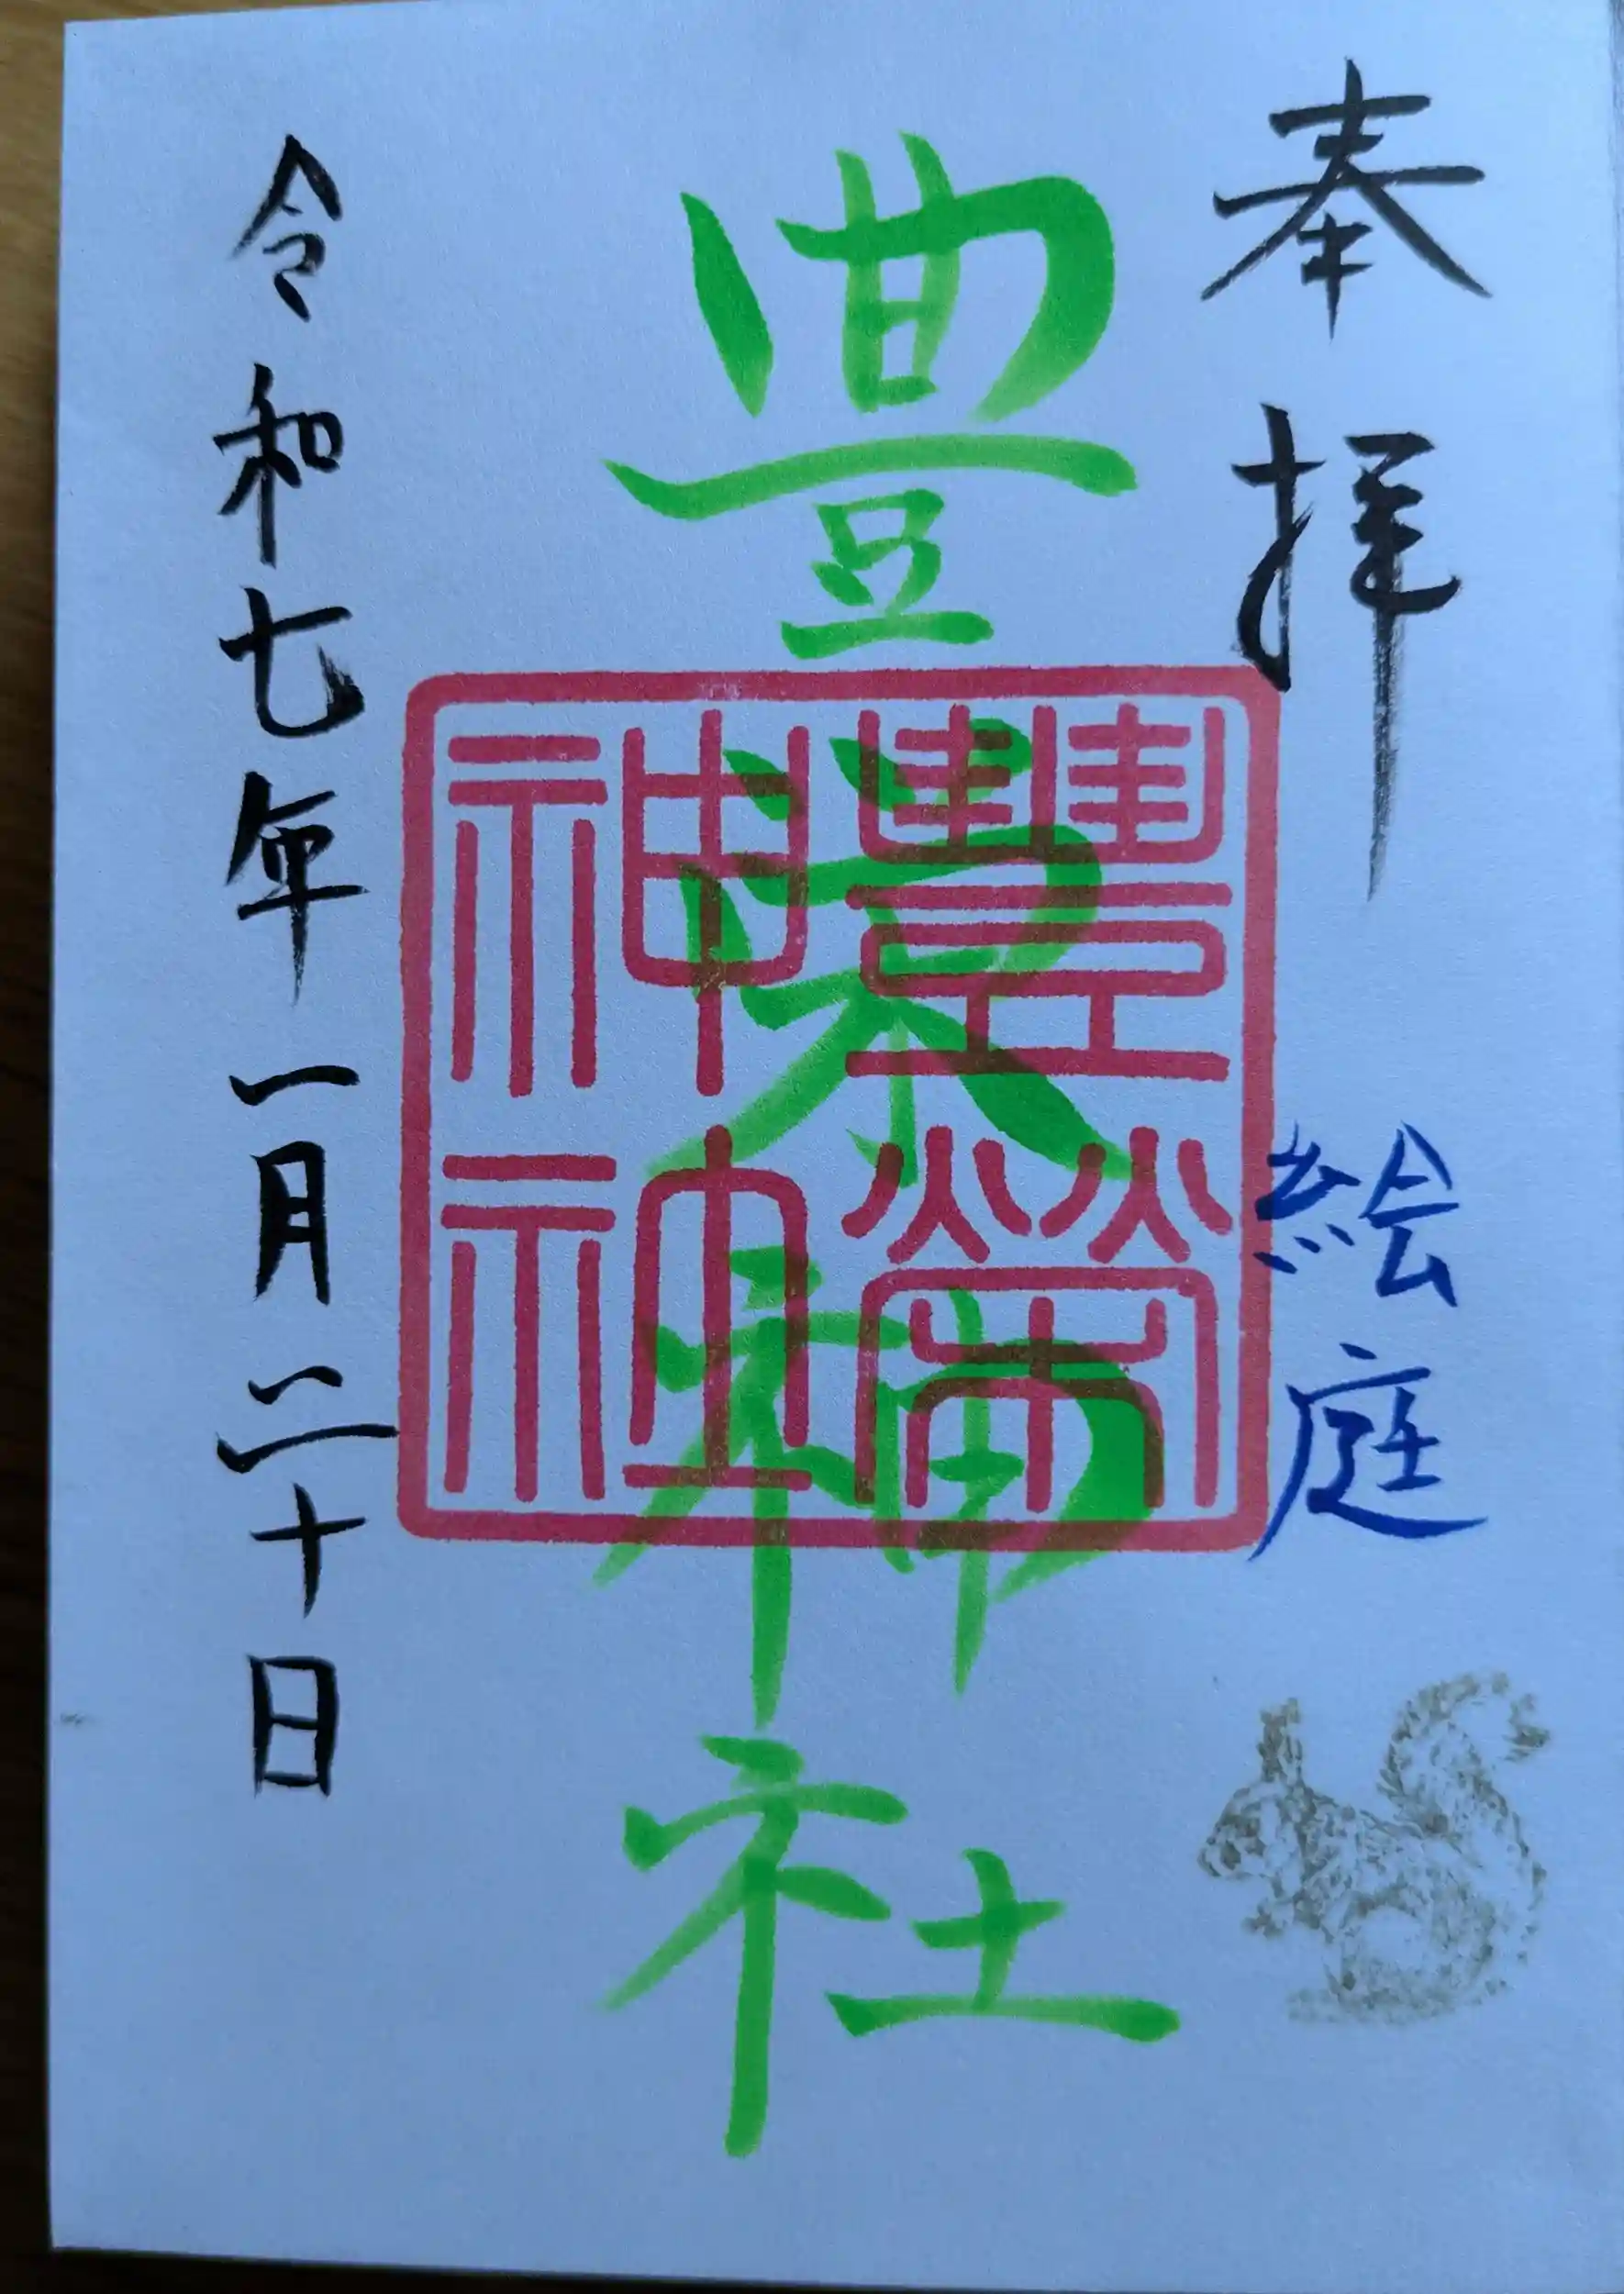 奉拝
絵庭
豊栄神社
豐榮神社
令和七年一月二十日